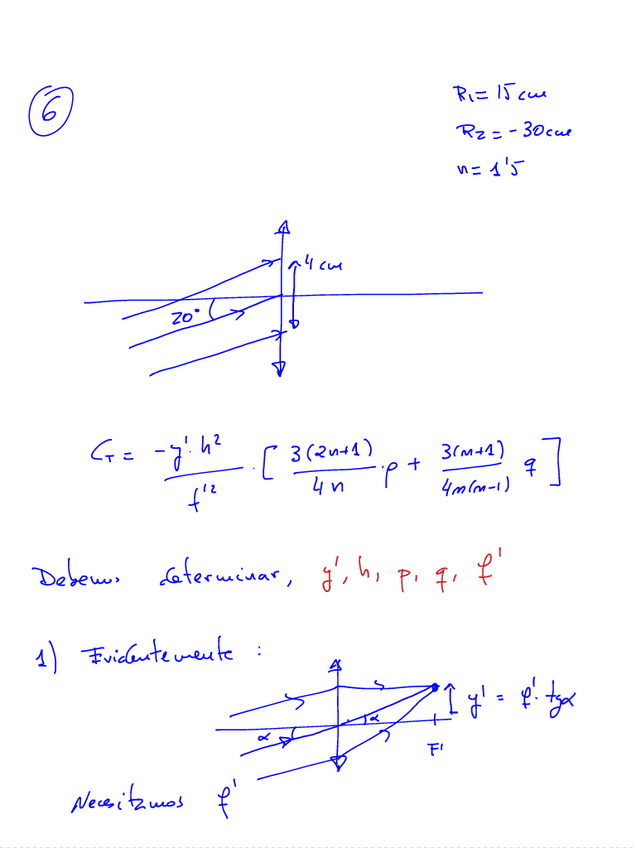 6
R₁ = 15 cm
R₂ = -30 cm
n = 1'5
4 cm
20°
C_T = -y'·h² / f'² · [ 3(2n+1) / 4n · p + 3(n+1) / 4n(n-1) q ]
Debemos determinar, y', h, p, q, f'
1) Evidentemente :
y' = f'· tgα
α α
F'
Necesitamos f'